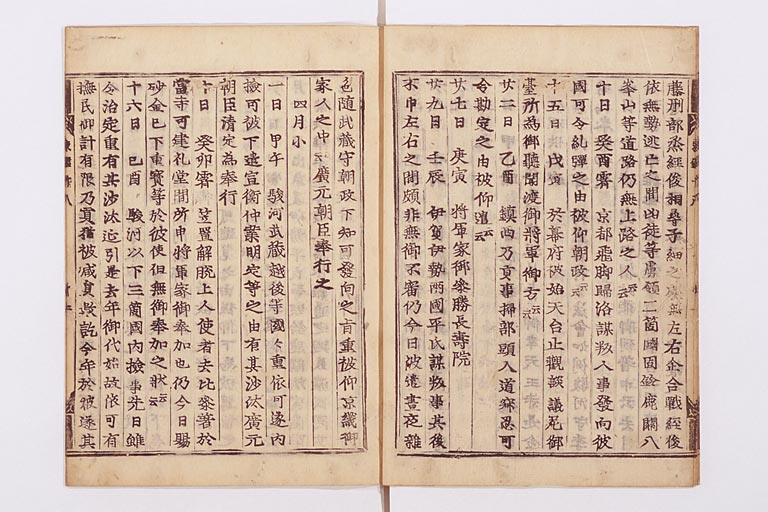 藤刑部丞経俊相尋子細之處無左右企合戰経俊
依無勢逃亡之間凶徒等虜領二箇國固鈴鹿關八
峯山等道路仍無上路之人云云
十日 癸酉霽 京都飛脚歸洛謀叛人事發向彼
國可令糺彈之由被仰朝政云云
十五日 戊寅 於幕府被始天台止觀談議尼御
臺所為御聽聞渡御將軍御方云云
廿二日 乙酉 鎮西乃貢事掃部頭入道寂忍可
令勘定之由被仰遣云云
廿七日 庚寅 將軍家御參勝長壽院
廿九日 壬辰 伊賀伊勢兩國平氏謀叛事其後
不申左右之間頗非無御不審仍今日被遣晝夜雜
色随武藏守朝政下知可發向之旨重被仰京畿御
家人之中云云廣元朝臣奉行之
四月小
一日 甲午 駿河武藏越後等國々重依可遂內
檢可被下遣宣衡仲業明定等之由有其沙汰廣元
朝臣清定為奉行
十日 癸卯霽 笠置解脫上人使者去比參著於
當寺可建礼堂間所申將軍家御奉加也仍今日賜
砂金已下重寳等於彼使但無御奉加之狀云云
十六日 己酉 駿河以下三箇國內檢事先日雖
令治定重有其沙汰延引是去年御代始故依可有
撫民御計有限乃貢猶被減員數訖今年於被遂其